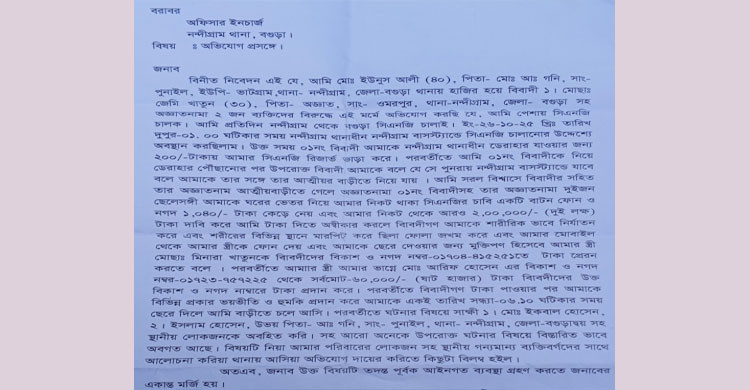 বরাবর
অফিসার ইনচার্জ
নন্দীগ্রাম থানা, বগুড়া।
বিষয় : অভিযোগ প্রসঙ্গে।
জনাব
বিনীত নিবেদন এই যে, আমি মোঃ ইউনুস আলী (৪০), পিতা- মোঃ আঃ গনি, সাং-
পুনাইল, ইউপি- ভাটগ্রাম,থানা- নন্দীগ্রাম, জেলা-বগুড়া থানায় হাজির হয়ে বিবাদী ১। মোছাঃ
জেমি খাতুন (৩০), পিতা- অজ্ঞাত, সাং- ওমরপুর, থানা-নন্দীগ্রাম, জেলা- বগুড়া সহ
অজ্ঞাতনামা ২ জন ব্যক্তিদের বিরুদ্ধে এই মর্মে অভিযোগ করছি যে, আমি পেশায় সিএনজি
চালক। আমি প্রতিদিন নন্দীগ্রাম থেকে বগুড়া সিএনজি চালাই। ইং-২৬-১০-২৫ খ্রিঃ তারিখ
দুপুর-০১. ০০ ঘটিকার সময় নন্দীগ্রাম থানাধীন নন্দীগ্রাম বাসস্ট্যান্ডে সিএনজি চালানোর উদ্দেশ্যে
অবস্থান করছিলাম। উক্ত সময় ০১নং বিবাদী আমাকে নন্দীগ্রাম থানাধীন ডেরাহার যাওয়ার জন্য
২০০/-টাকায় আমার সিএনজি রিজার্ভ ভাড়া করে। পরবর্তীতে আমি ০১নং বিবাদীকে নিয়ে
ডেরাহার পৌঁছানোর পর উপরোক্ত বিবাদী আমাকে বলে যে সে পুনরায় নন্দীগ্রাম বাসস্ট্যান্ডে যাবে
বলে আমাকে তার সঙ্গে তার আত্মীয়র বাড়ীতে নিয়ে যায় । আমি সরল বিশ্বাসে বিবাদীর সহিত
তার অজ্ঞাতনাম আত্মীয়বাড়ীতে গেলে অজ্ঞাতনামা ০১নং বিবাদীসহ তার অজ্ঞাতনামা দুইজন
ছেলেসঙ্গী আমাকে ঘরের ভেতর নিয়ে আমার নিকট থাকা সিএনজির চাবি একটি বাটন ফোন ও
নগদ ১,০৪০/- টাকা কেড়ে নেয় এবং আমার নিকট থেকে আরও ২,০০,০০০/- (দুই লক্ষ)
টাকা দাবি করে আমি টাকা দিতে অস্বীকার করলে বিবাদীগণ আমাকে শারীরিক ভাবে নির্যাতন
করে এবং শরীরের বিভিন্ন স্থানে মারপিট করে ছিলা ফোলা জখম করে এবং আমার মোবাইল
থেকে আমার স্ত্রীকে ফোন দেয় এবং আমাকে ছেরে দেওয়ার জন্য মুক্তিপণ হিসেবে আমার স্ত্রী
মোছাঃ মিনারা খাতুনকে বিবাদীদের বিকাশ ও নগদ নম্বর-০১৭০৪-৪১৫২৫১তে টাকা প্রেরন
করতে বলে । পরবর্তীতে আমার স্ত্রী আমার ভাগ্নে মোঃ আরিফ হোসেন এর বিকাশ ও নগদ
নম্বর-০১৭২৩-৭৫৭২২৫ থেকে সর্বমোট-৬০,০০০/- (ষাট হাজার) টাকা বিবাদীদের উক্ত
বিকাশ ও নগদ নাম্বারে টাকা প্রদান করে। পরবর্তীতে বিবাদীগণ টাকা পাওয়ার পর আমাকে
বিভিন্ন প্রকার ভয়ভীতি ও হুমকি প্রদান করে আমাকে একই তারিখ সন্ধ্যা-০৬.১০ ঘটিকার সময়
ছেরে দিলে আমি বাড়ীতে চলে আসি। পরবর্তীতে ঘটনার বিষয়ে সাক্ষী ১। মোঃ ইকবাল হোসেন,
২ । ইসলাম হোসেন, উভয় পিতা- আঃ গনি, সাং- পুনাইল, থানা- নন্দীগ্রাম, জেলা-বগুড়াদ্বয় সহ
স্থানীয় লোকজনকে অবহিত করি। সহ আরো অনেকে উপরোক্ত ঘটনার বিষয়ে বিস্তারিত ভাবে
অবগত আছে। বিষয়টি নিয়া আমার পরিবারের লোকজন সহ স্থানীয় গন্যমান্য ব্যক্তিবর্গদের সাথে
আলোচনা করিয়া থানায় আসিয়া অভিযোগ দায়ের করিতে কিছুটা বিলম্ব হইল।
অতএব, জনাব উক্ত বিষয়টি তদন্ত পূর্বক আইনগত ব্যবস্থা গ্রহণ করতে জনাবের
একান্ত মর্জি হয়।